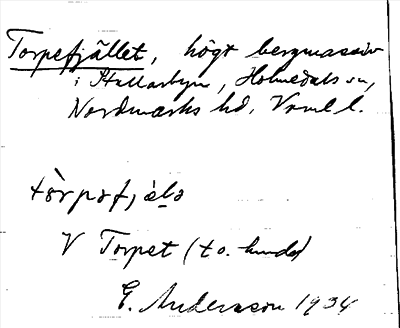 Torpefjället, högt bergmassiv
i Hallarbyn, Holmedals sn,
Nordmarks hd. Värml l.
törpəfjälə
V Torpet (t o. hundə)
E. Andersson 1934